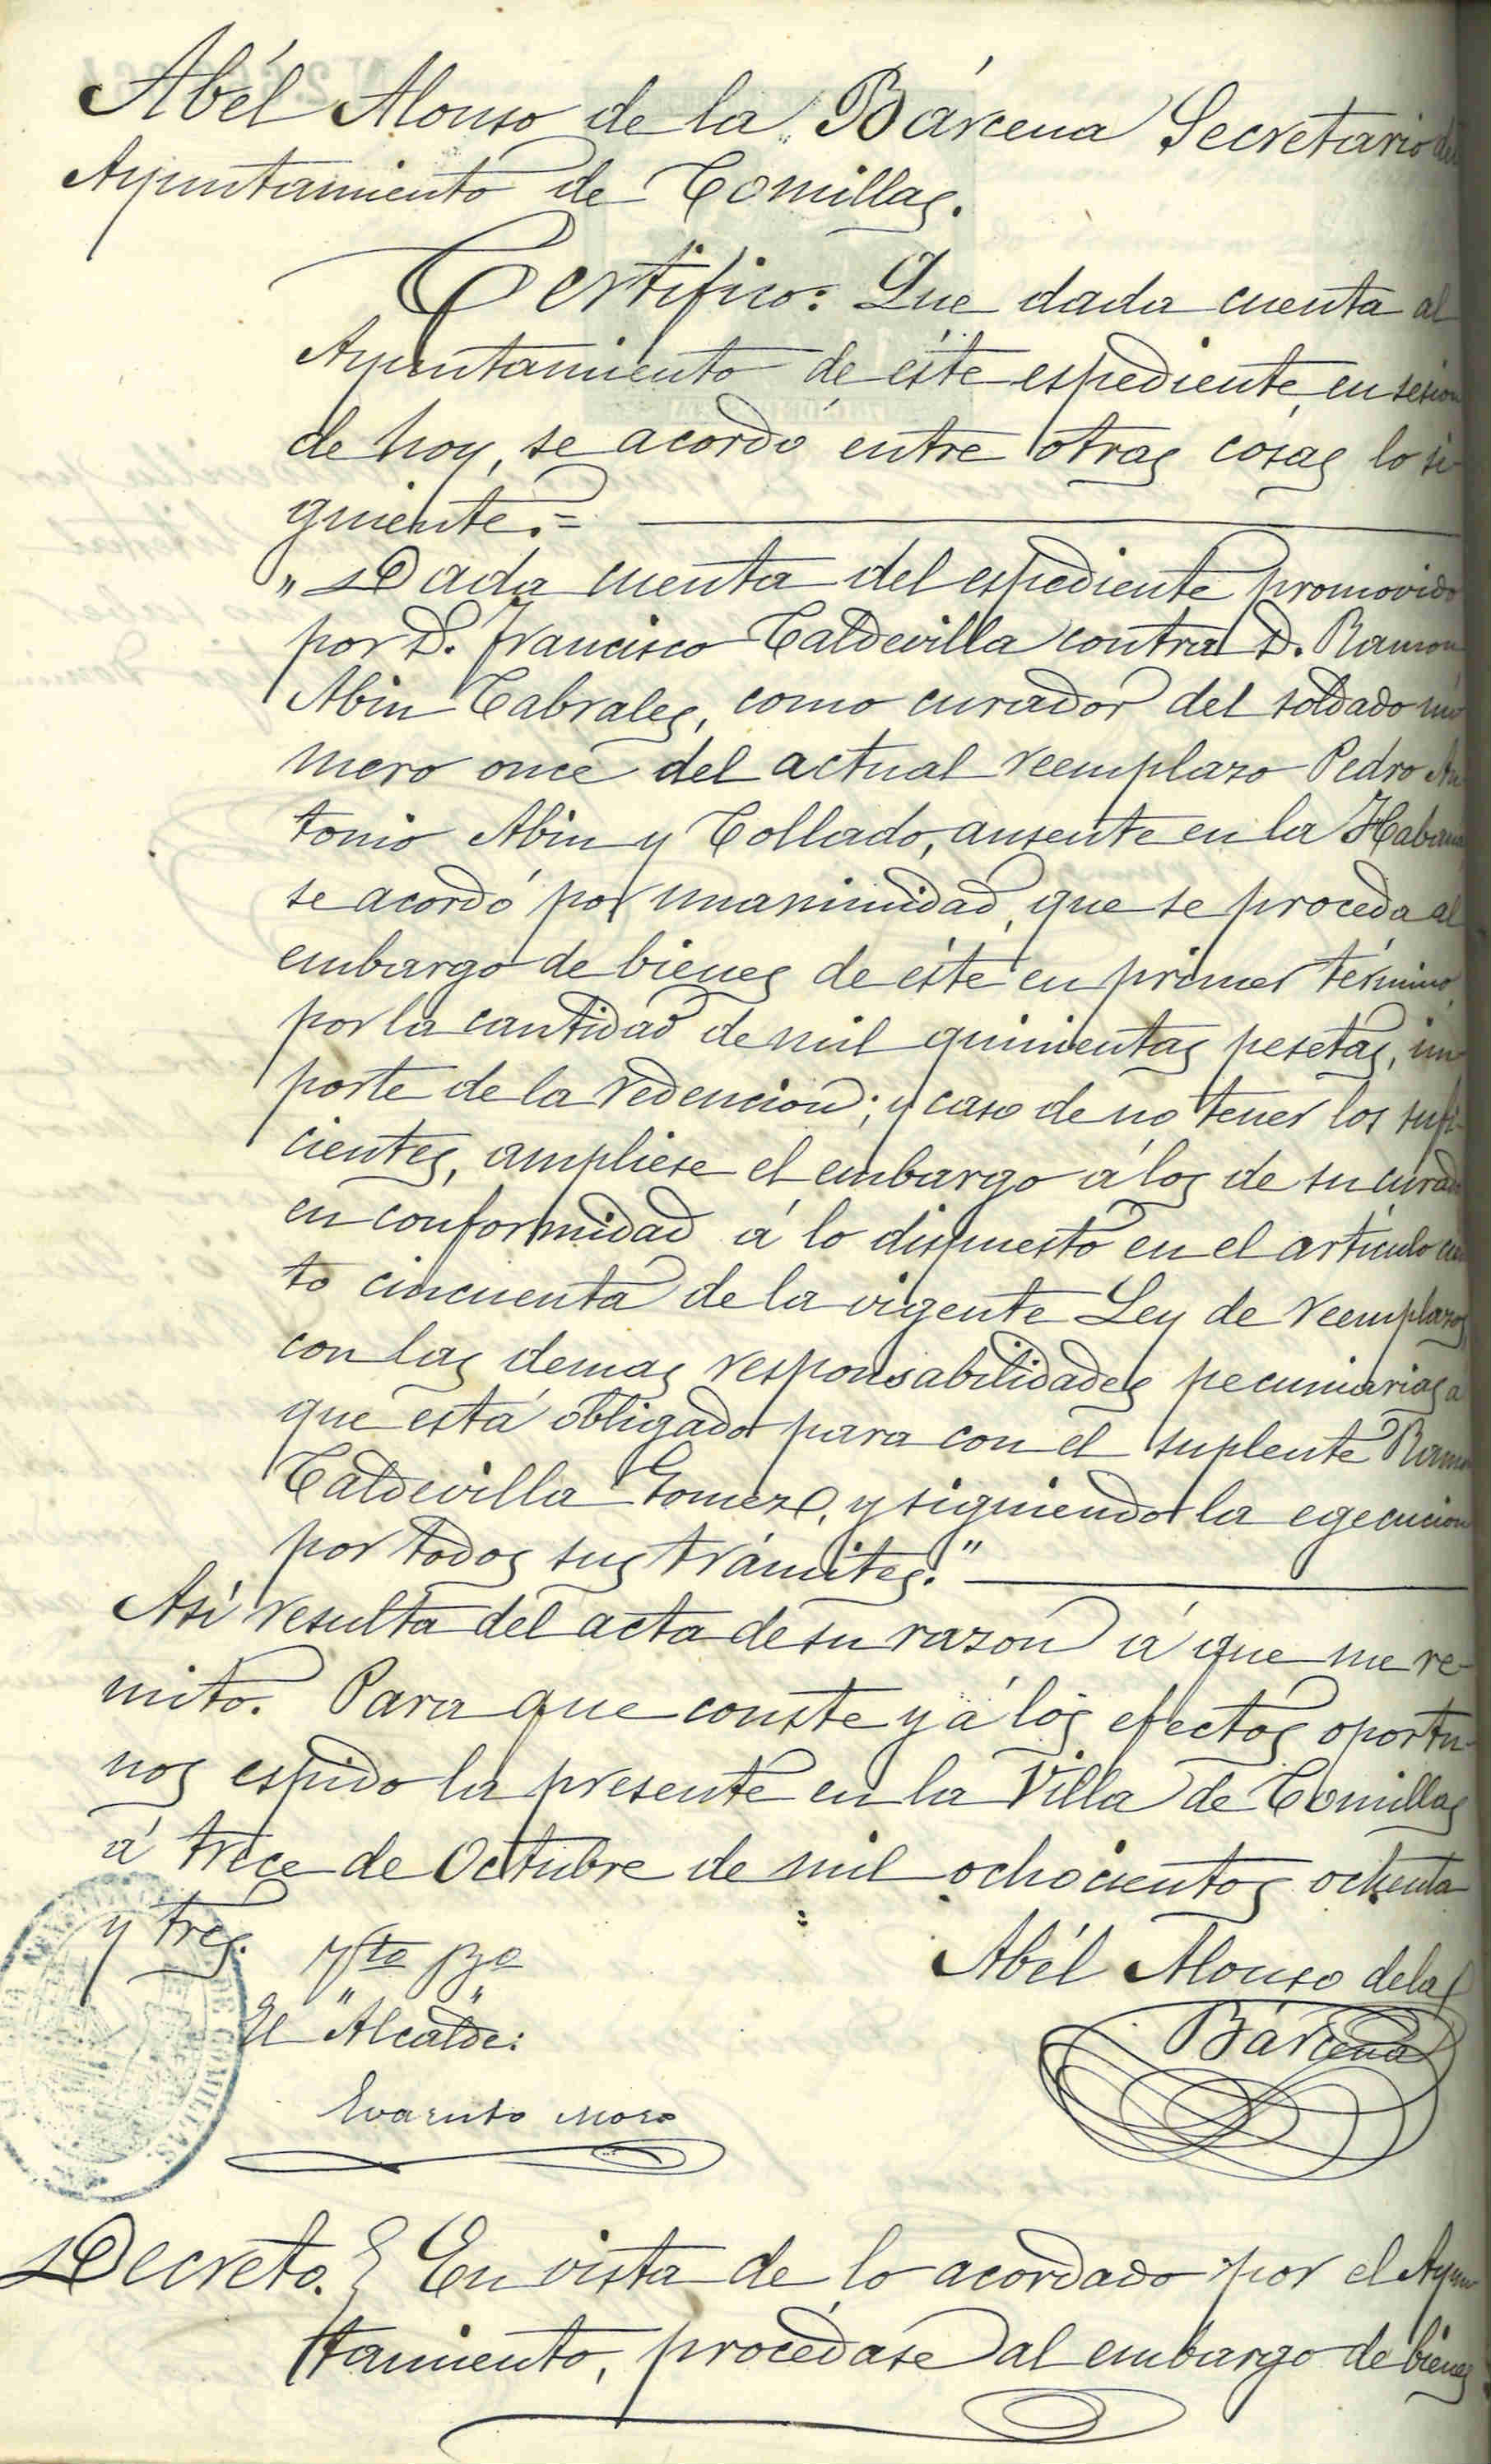 Abél Alonso de la Bárcena Secretario del
Ayuntamiento de Comillas.
Certifico: Que dada cuenta al
Ayuntamiento de éste espediente, en sesion
de hoy, se acordó entre otras cosas lo si-
guiente.=
"Dada cuenta del espediente promovido
por D. Francisco Caldevilla contra D. Ramon
Abin Cabrales, como curador del soldado nú
mero once del actual reemplazo Pedro An
tonio Abin y Collado, ausente en la Habana
se acordó por unanimidad, que se proceda al
embargo de bienes de éste en primer término,
por la cantidad de mil quinientas pesetas, im
porte de la redencion; y caso de no tener los sufi-
cientes, ampliese el embargo á los de su curador
en conformidad á lo dispuesto en el artículo cien
to cincuenta de la vigente Ley de reemplazos
con las demas responsabilidades pecuniarias a
que está obligado para con el suplente Ramon
Caldevilla Gomez, y siguiendo la egecucion
por todos sus trámites."
Así resulta del acta de su razon á que me re-
mito. Para que conste y á los efectos oportu-
nos espido la presente en la Villa de Comillas
á trece de Octubre de mil ochocientos ochenta
y tres.
Vto Bo
El Alcalde:
Abél Alonso de la
Bárcena
Evaristo Moro
DE COMILLAS
Decreto. } En vista de lo acordado por el Ayun
tamiento, procédase al embargo de bienes